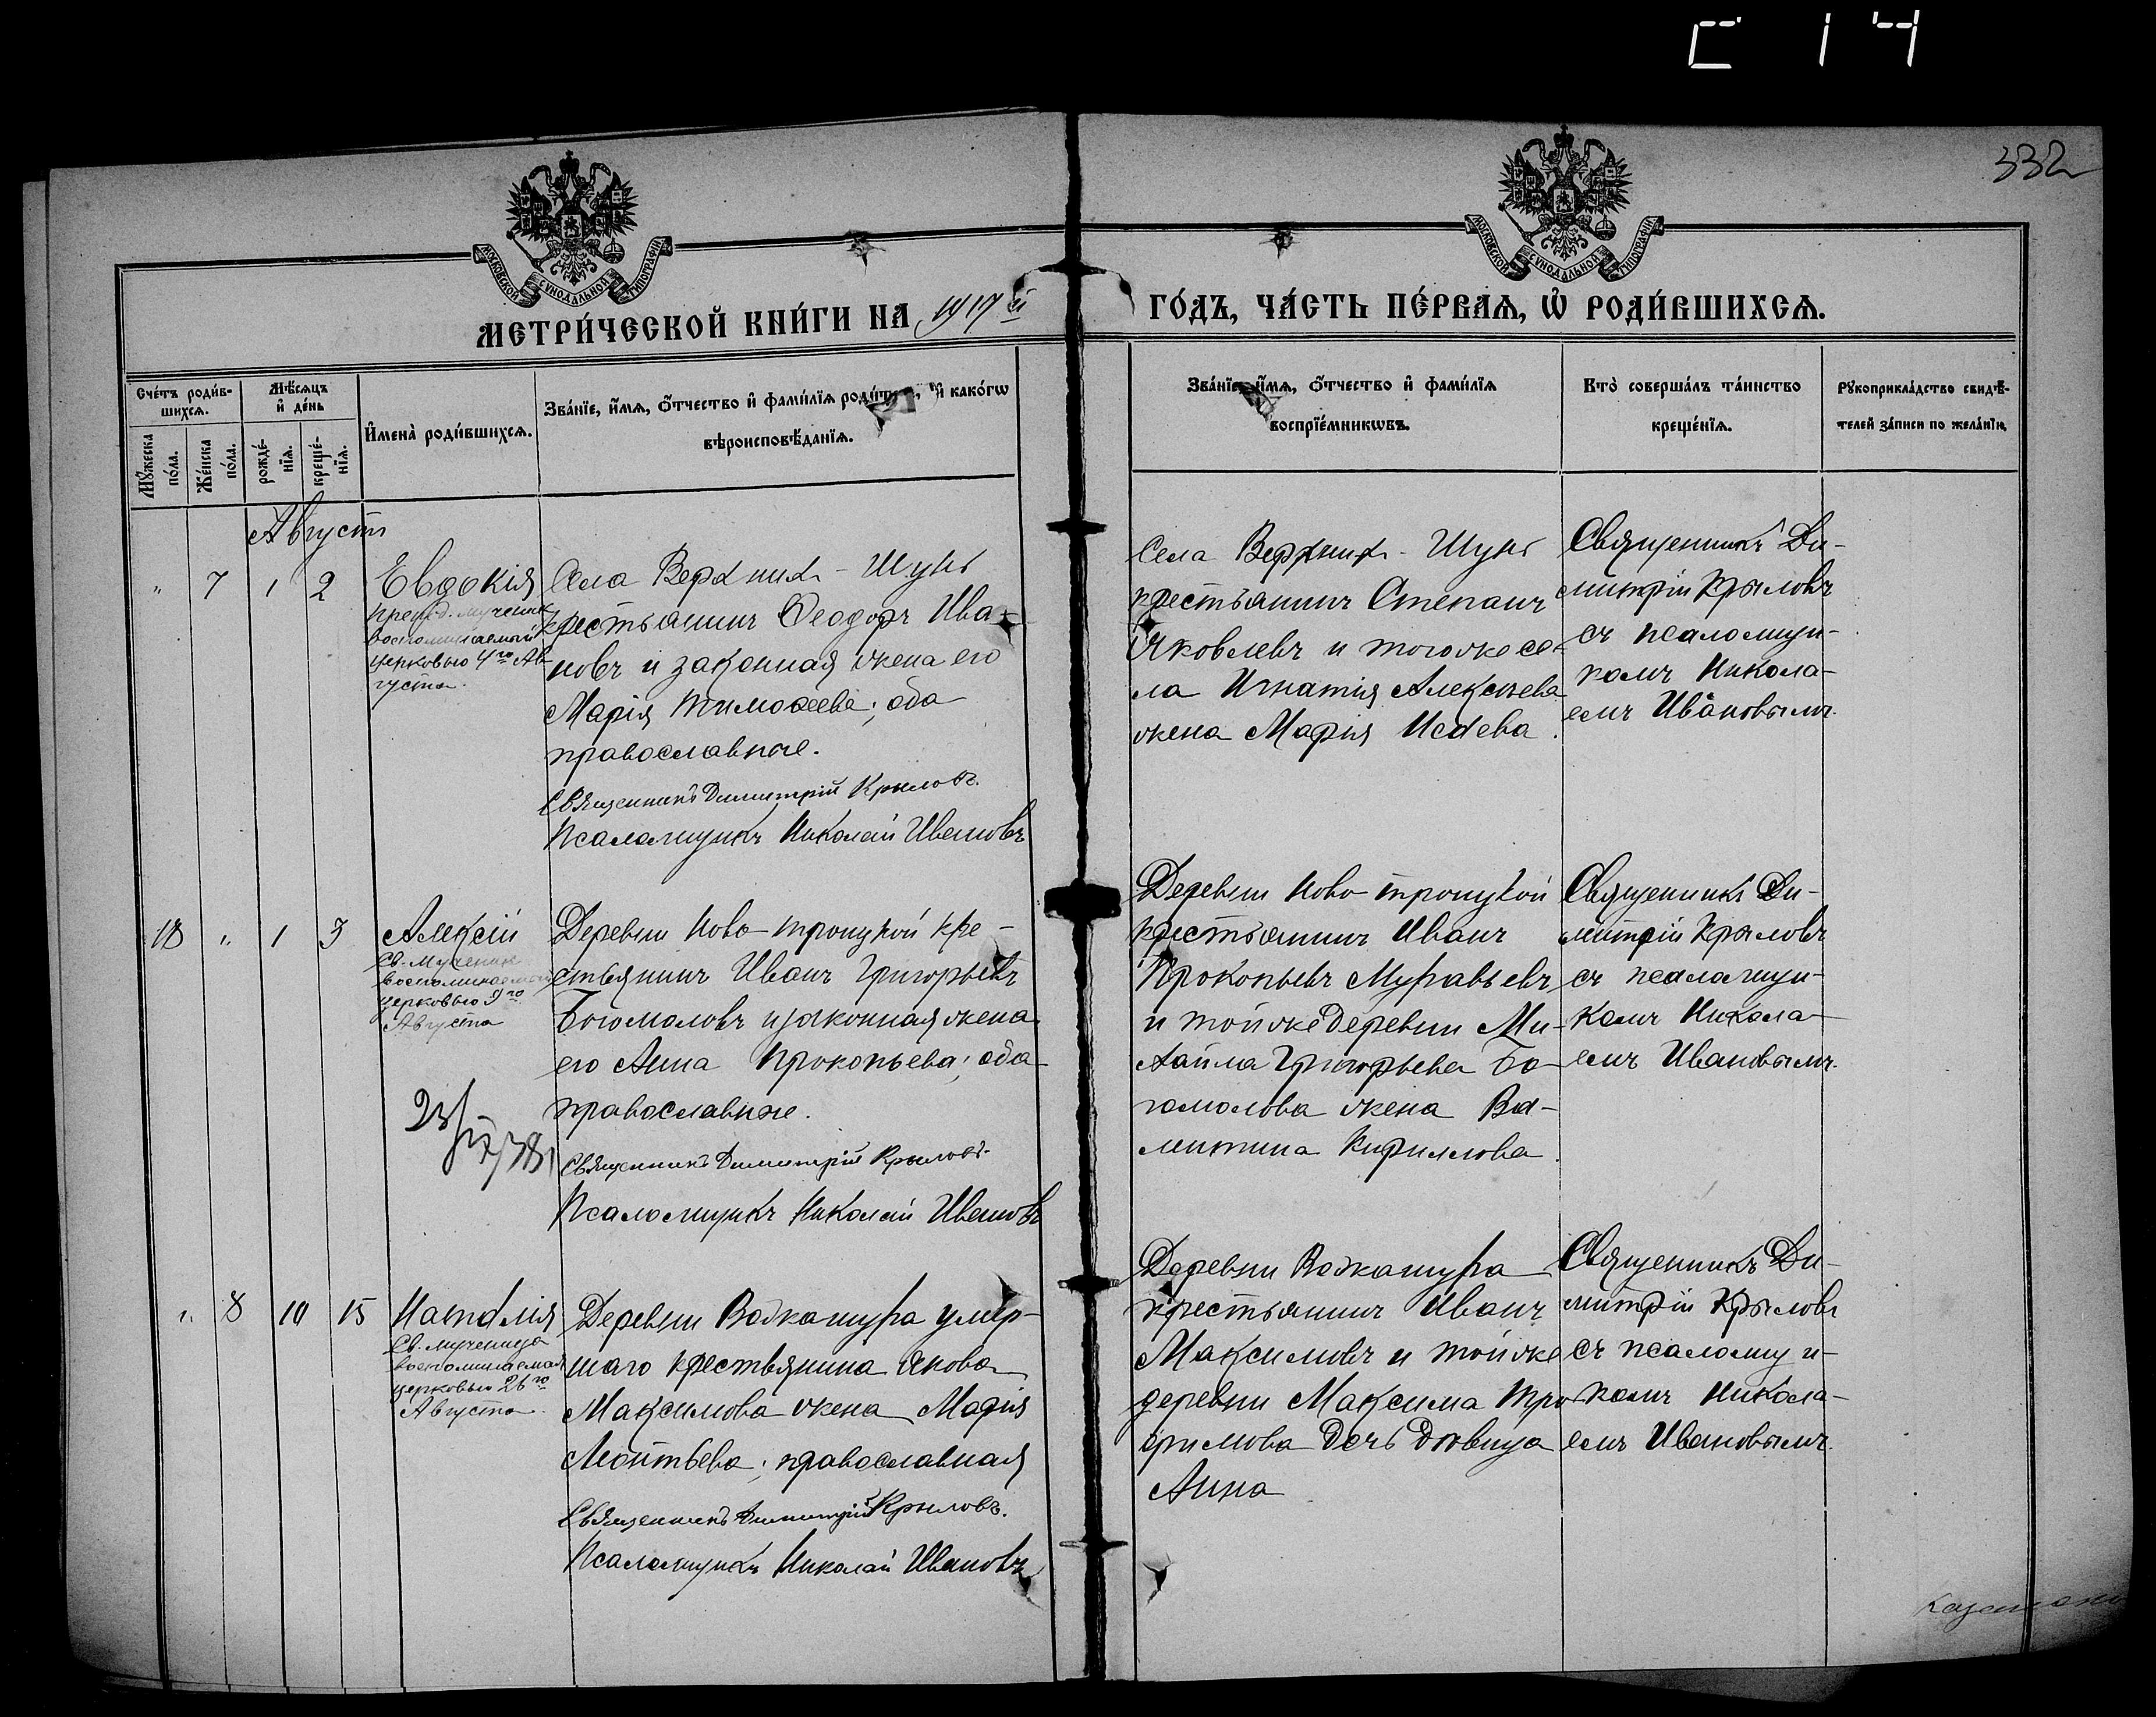 С 14
332
МОСКОВСКОЙ СѴНОДАЛЬНОЙ ТИПОГРАФІИ
МОСКОВСКОЙ СѴНОДАЛЬНОЙ ТИПОГРАФІИ
МЕТРИ́ЧЕСКОЙ КНИ́ГИ НА 1917 й
ГО́ДЪ, ЧА́СТЬ ПЕ́РВАѦ, Ѡ҆ РОДИ́ВШИХСѦ.
Сче́тъ роди́в-
шихсѧ.
Мѣ́сѧцъ
и҆ де́нь
Мꙋ́жеска
по́ла.
Же́нска
по́ла.
рожде́-
нїѧ.
креще́-
нїѧ.
И҆мена̀ роди́вшихсѧ.
Зва́нїе, и҆́мѧ, ѻ҆́тчество и҆ фами́лїѧ
и҆ како́гѡ
вѣроисповѣ́данїѧ.
Зва́нїе, и҆́мѧ, ѻ҆́тчество и҆ фами́лїѧ
воспрїе́мникѡвъ.
Кто̀ соверша́лъ та́инство
креще́нїѧ.
Рꙋкоприкла́дство свидѣ́-
телей за́писи по жела́нїю.
Августъ
" 7 1 2
Евдокія
Препод. мучениц
воспоминаемой
церковью 4го Ав-
густа.
Села Верхних-Шунь
крестьянинъ Ѳеодоръ Ива-
новъ и законная жена его
Марія Тимоѳеева; оба
православные.
Священникъ Димитрій Крыловъ.
Псаломщикъ Николай Ивановъ
Села Верхних-Шунь
крестьянинъ Степанъ
Яковлевъ и тогоже се-
ла Игнатія Алексѣева
жена Марія Исаева.
Священникъ Ди-
митрій Крыловъ
съ псаломщи-
комъ Никола-
емъ Ивановымъ.
18 " 1 3
Алексій
Св. Мученик
воспоминаемый
церковью 9го
Августа
23/IX/38
Деревни Ново-троицкой кре-
стьянинъ Иванъ Григорьевъ
Богомоловъ и законная жена
его Анна Прокопьева; оба
православные.
Священникъ Димитрій Крыловъ.
Псаломщикъ Николай Ивановъ
Деревни Ново-троицкой
крестьянинъ Иванъ
Прокопьевъ Муравьевъ
и тойже деревни Ми-
хаила Григорьева Бо-
гомолова жена Ва-
лентина Кириллова.
Священникъ Ди-
митрій Крыловъ
съ псаломщи-
комъ Никола-
емъ Ивановымъ.
" 8 10 15
Наталія
Св. мученица
воспоминаемая
церковью 26го
Августа.
Деревни Вожашура умер-
шаго крестьянина Якова
Максимова жена Марія
Леонтьева; православная
Священникъ Димитрій Крыловъ.
Псаломщикъ Николай Ивановъ
Деревни Вожашура
крестьянинъ Иванъ
Максимовъ и тойже
деревни Максима Тро-
фимова дочь дѣвица
Анна
Священникъ Ди-
митрій Крыловъ
съ псаломщи-
комъ Никола-
емъ Ивановымъ.